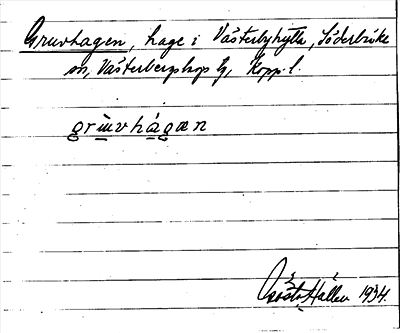 Gruvhagen, hage i Västerbyhytta, Söderbärke
sn, Västerbergslags tg, Kopp. l.
grùvhágæn
Gösta Hallén 1934.